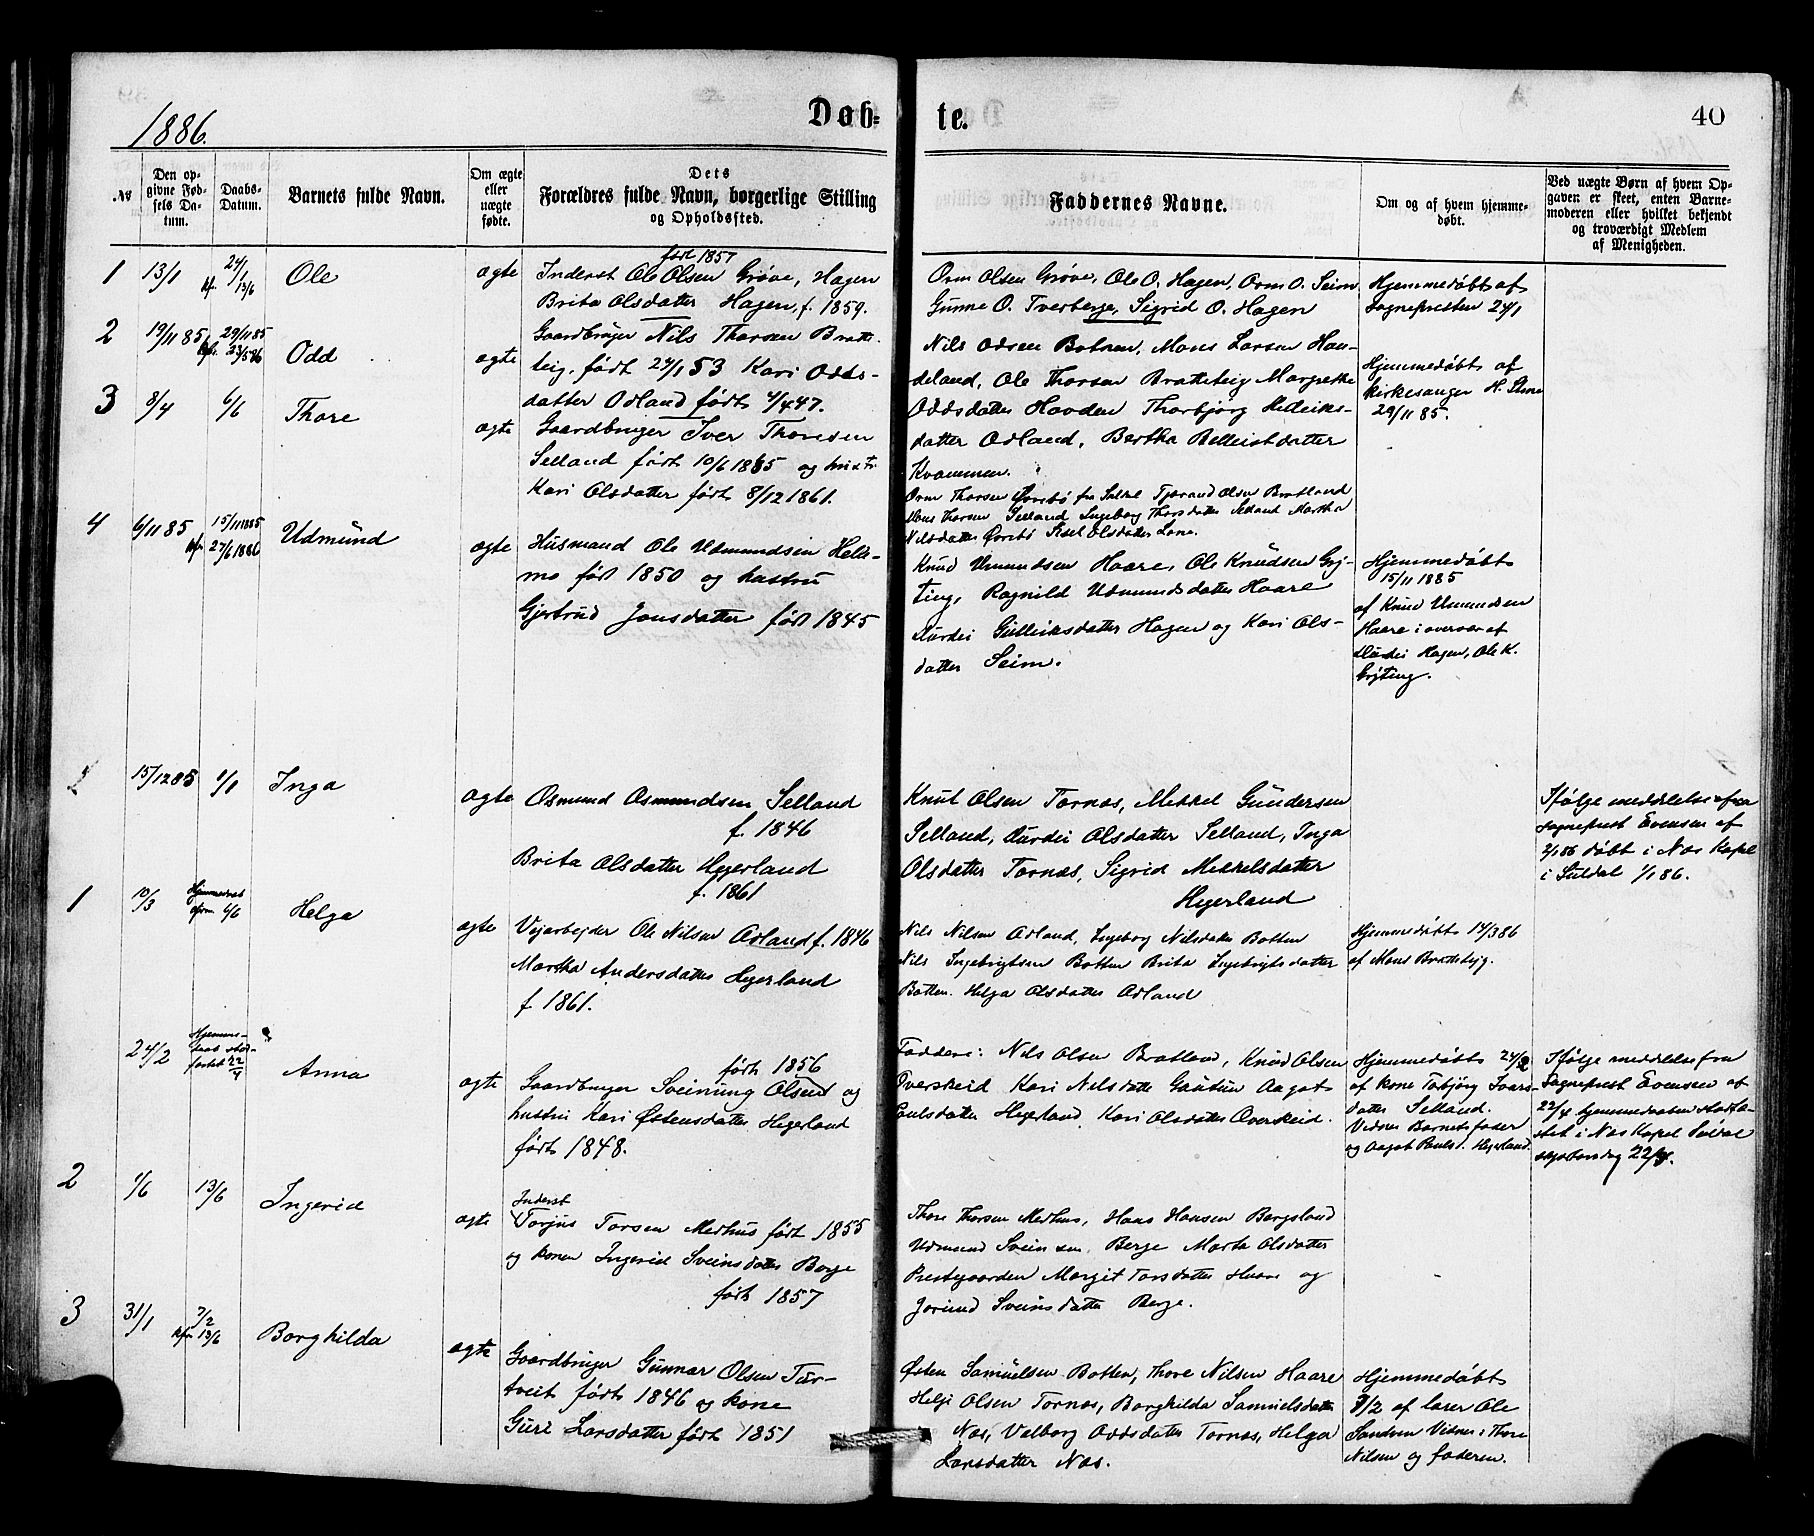 1886.
Døb-
te.
40
No
Den op-
givne Fød-
sels Da-
tum.
Daabs-
Datum.
Barnets fulde Navn.
Om ægte
eller
uægte
fødte.
Dets
Forældres fulde Navn, borgerlige Stilling
og Opholdssted.
Faddernes Navne.
Om og af hvem hjemme-
døbt.
Ved uægte Børn af hvem Op-
gaven er skeet, enten Barne-
moderen eller hvilket bekjendt
og troværdigt Medlem
af Menigheden.
1 13/1 24/1 13/6 Ole ægte
født 1857
Inderst Ole Olsen Grøve, Hagen
Brita Olsdatter Hagen, f. 1859.
Orm Olsen Grøve, Ole O. Hagen, Orm O. Seim
Gunne O. Tverberge, Sigrid O. Hagen
Hjemmedøbt af
Sognepresten 24/1
2 19/11 85 29/11 85 Odd ægte
Gaardbruger Nils Thorsen Bratte-
teig, født 24/1 53 Kari Odds-
datter Ørland født 4/4 47.
Nils Odsen Botnen, Mons Larsen Hau-
deland, Ole Thorsen Bratteteig Margrethe
Oddsdatter Havden Thorbjørg
datter Ørland, Bertha
Kvammen.
Hjemmedøbt af
kirkesanger H. Stene
29/11 85.
3 8/4 6/6 Thore ægte
Gaardbruger Iver Thoresen
Selland født 10/6 1855 og hustru
Kari Olsdatter født 8/12 1861.
Orm Thorsen Øvrebø fra Saltel Tjerand Olsen Bratland
Mons Thorsen Selland Ingeborg Thorsdatter Selland Martha
Nilsdatter Øvrebø Sisel Olsdatter Lone.
4 6/11 85 15/11 1885 27/6 1886 Udmund ægte
Husmand Ole Udmundsen Helle-
mo født 1850 og hustru
Gjertrud Jonsdatter født 1845
Knud Umundsen Haare, Ole Knudsen Grj-
ting, Ragnild Udmundsdatter Haare
Durdei Gulleiksdatter Hagen og Kari Ols-
datter Seim.
Hjemmedøbt
15/11 1885
af Knud Umundsen
Haare i overvær af
Durdei Hagen, Ole K.
Grjting.
15/12 85 1/1 Inga ægte
Osmund Osmundsen Selland
f. 1846
Brita Olsdatter Hegerland
f. 1861
Knut Olsen Tornæs, Mikkel Gundersen
Selland, Durdei Olsdatter Selland, Inga
Olsdatter Tornæs, Sigrid Mikkelsdatter
Hegerland
Ifølge meddelelse fra
Sogneprest Evensen af
2/1 86 døbt i Næs Kapel
i Suldal 1/1 86.
1 10/3 6/6 Helga ægte
Vejarbejder Ole Nilsen Ørland f. 1846
Martha Andersdatter Hegerland
f. 1861.
Nils Nilsen Ørland, Ingeborg Nilsdatter Botten
Nils Ingebrigtsen Botten Brita Ingebrigtsdatter
Botten. Helga Olsdatter Ørland
Hjemmedøbt 14/3 86
af Mons Bratteteig.
24/2 22/4 Anna ægte
født 1856
Gaardbruger Sveinung Olsen og
hustru Kari Østensdatter Hegerland
født 1848.
Faddere: Nils Olsen Bratland, Knud Olsen
Overskeid Kari Nilsdatter Gautun Aagot
Paulsdatter Hegerland, Kari Olsdatter Overskeid.
Hjemmedøbt 24/2
af kone Torbjørg Ivars-
datter Selland.
Vidner Barnets fader
og Aagot Paulsd. Hegerland.
Ifølge meddelelse fra
Sogneprest Evensen af
22/4 hjemmedaaben stadfæ-
stet i Næs Kapel Suldal
22/4.
2 1/6 13/6 Ingerid ægte
Inderst
Torjus Torsen Medhus født 1855
og konen Ingerid Sveinsdatter Berge
født 1857
Thore Thorsen Medhus, Hans Hansen Bergsland
Udmund Sveinsen Berge Marta Olsdatter
Prestgaarden Margit Torsdatter Haare og
Jorund Sveinsdatter Berge.
3 31/1 7/2 13/6 Borghilda ægte
Gaardbruger Gunnar Olsen Tur-
tveit født 1846 og kone
Guri Larsdatter født 1851
Østen Samuelsen Botten, Thore Nilsen Haare
Helje Olsen Tornæs, Borghilda Samuelsdatter
Næs, Valborg Oddsdatter Tornæs, Helga
Larsdatter Næs.
Hjemmedøbt
7/2 af lærer Ole
Sandven Vidner: Thore
Nilsen og faderen.